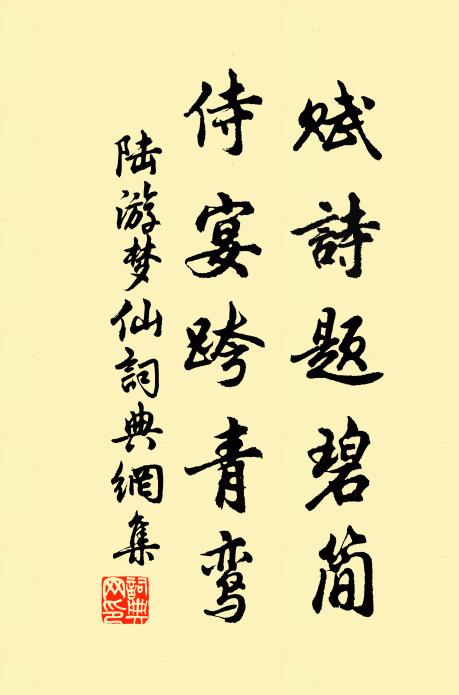 赋詩题碧简
侍宴跨青鸾
陆游梦仙詞典網集
詞典
网印